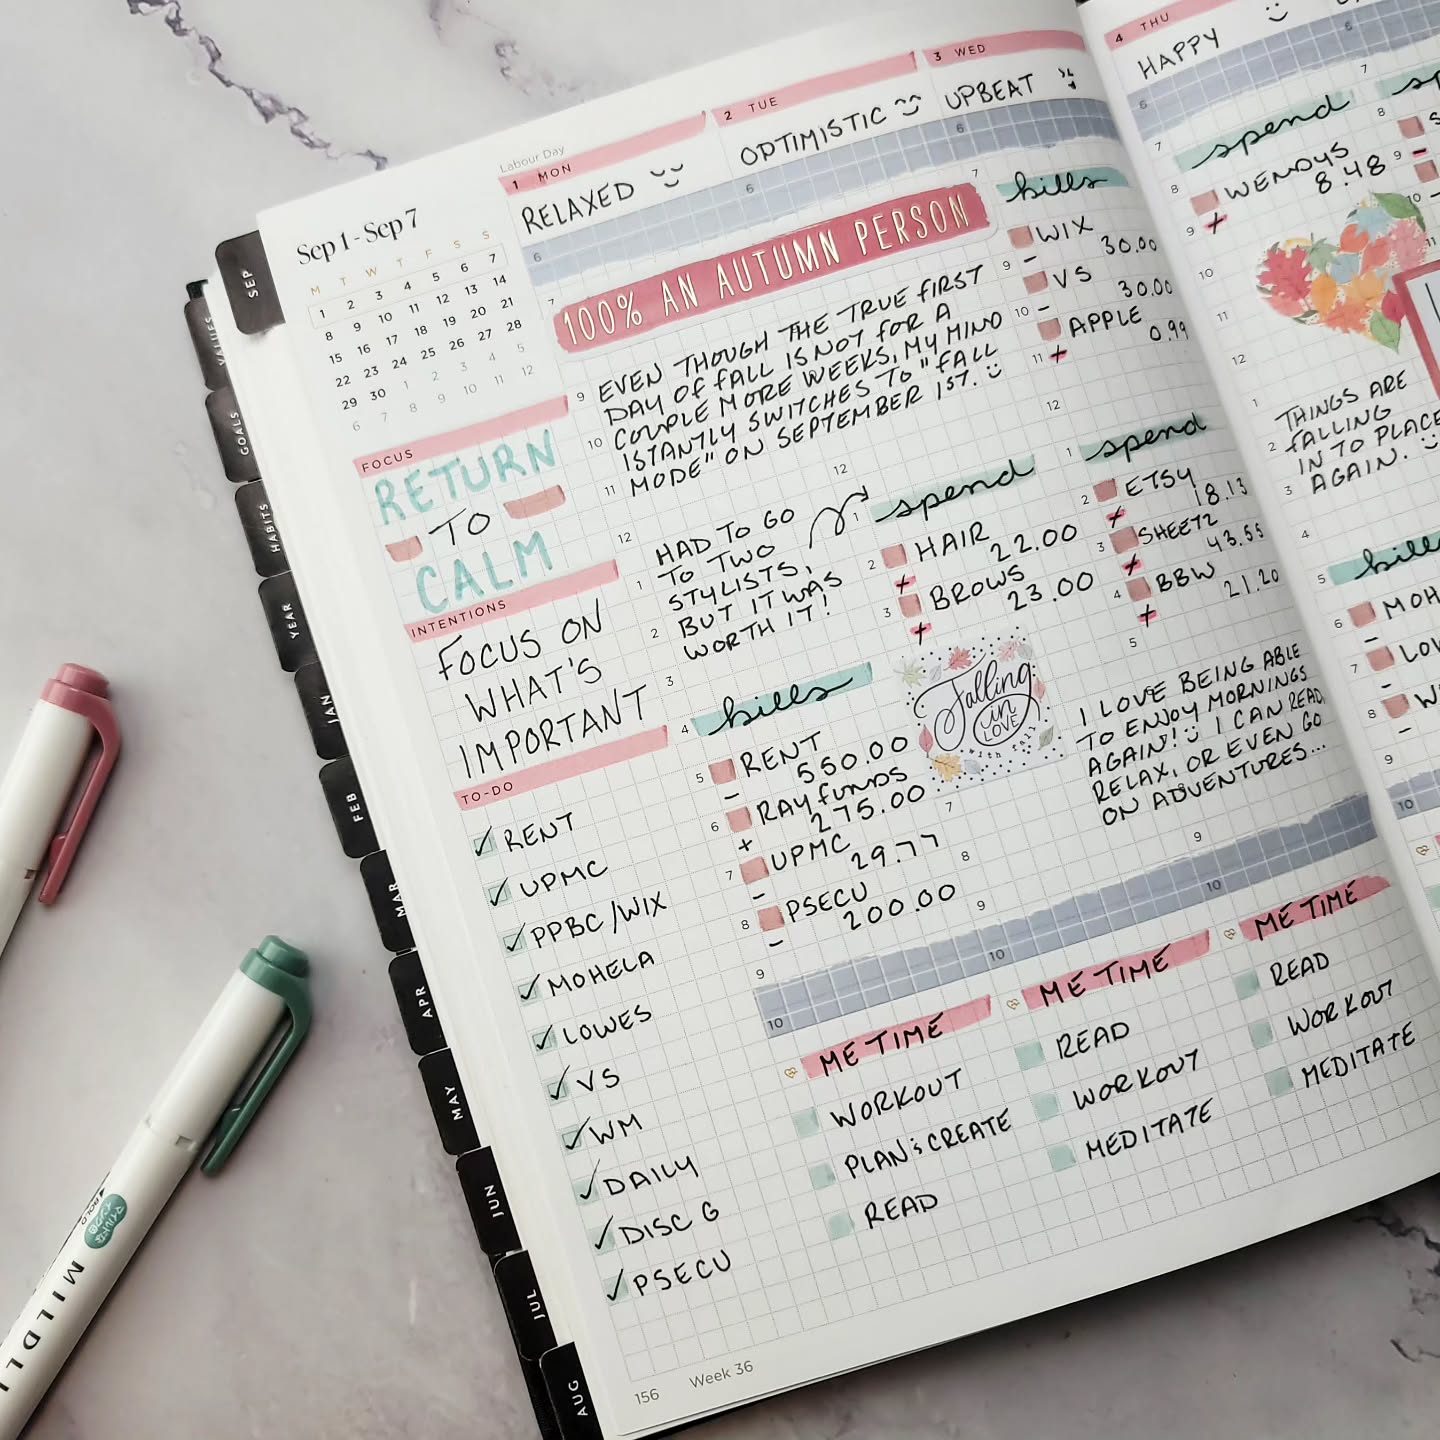 Sep 1 - Sep 7
M T W T F S S
1 2 3 4 5 6 7
8 9 10 11 12 13 14
15 16 17 18 19 20 21
22 23 24 25 26 27 28
29 30 1 2 3 4 5
6 7 8 9 10 11 12
FOCUS
RETURN
TO
CALM
INTENTIONS
FOCUS ON
WHAT'S
IMPORTANT
TO-DO
✓ RENT
✓ UPMC
✓ PPBC/WIX
✓ MOHELA
✓ LOWES
✓ VS
✓ WM
✓ DAILY
✓ DISC G
✓ PSECU
156 Week 36
Labour Day
1 MON
RELAXED
100% AN AUTUMN PERSON
EVEN THOUGH THE TRUE FIRST
DAY OF FALL IS NOT FOR A
COUPLE MORE WEEKS, MY MIND
ISTANTLY SWITCHES TO "FALL
MODE" ON SEPTEMBER 1ST. :)
HAD TO GO
TO TWO
STYLISTS,
BUT IT WAS
WORTH IT!
bills
RENT
- 550.00
RAY FUNDS
+ 275.00
UPMC
- 29.77
PSECU
- 200.00
ME TIME
WORKOUT
PLAN & CREATE
READ
2 TUE
OPTIMISTIC
spend
HAIR
+ 22.00
BROWS
+ 23.00
Falling
in
LOVE
with
ME TIME
READ
WORKOUT
MEDITATE
3 WED
UPBEAT
bills
WIX
- 30.00
VS
- 30.00
APPLE
+ 0.99
spend
ETSY
+ 18.13
SHEETZ
+ 43.55
BBW
+ 21.20
I LOVE BEING ABLE
TO ENJOY MORNINGS
AGAIN! :) I CAN READ,
RELAX, OR EVEN GO
ON ADVENTURES...
ME TIME
READ
WORKOUT
MEDITATE
4 THU
HAPPY :)
spend
WENDYS
+ 8.48
THINGS ARE
FALLING
IN TO PLACE
AGAIN. :)
bills
MOH
LOW
W
SEP
VALUES
GOALS
HABITS
YEAR
JAN
FEB
MAR
APR
MAY
JUN
JUL
AUG
MILDL